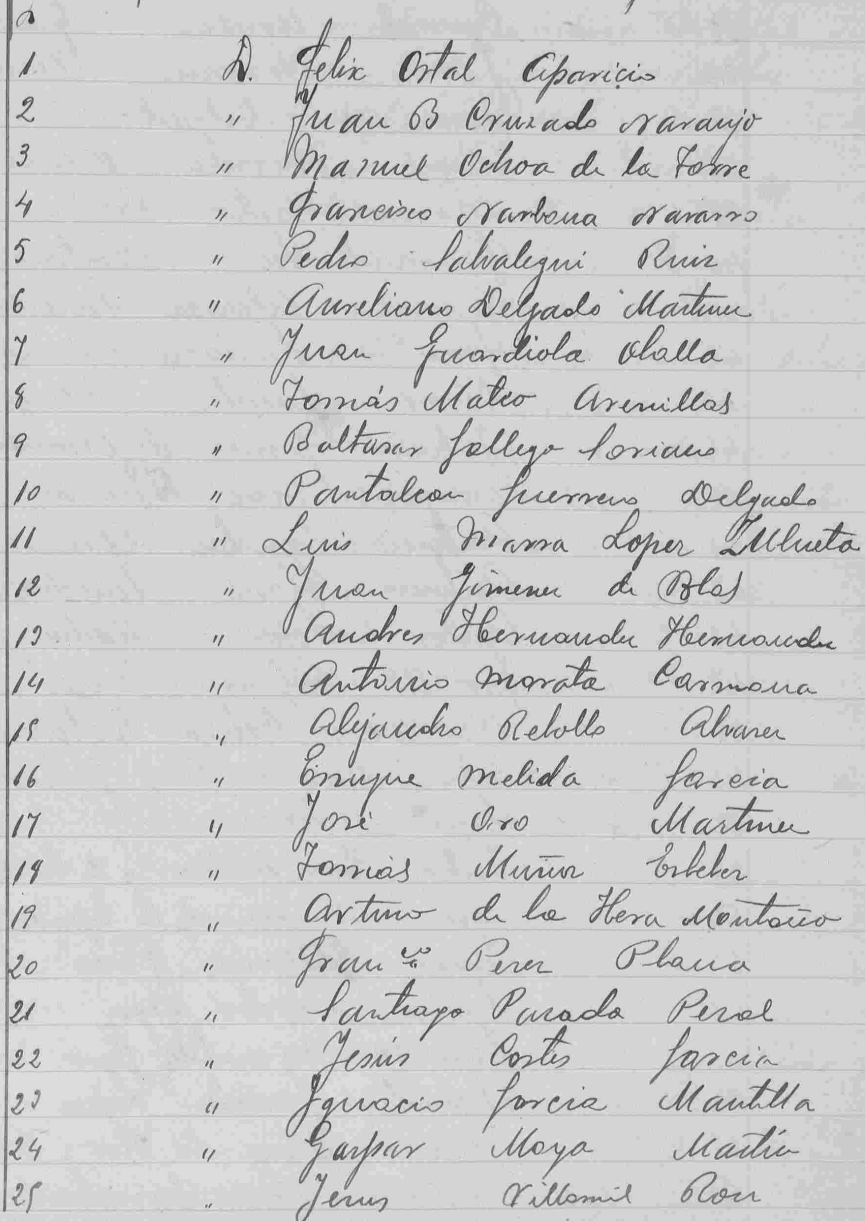 1 D. Felix Ortal Aparicio
2 " Juan B Cruzado Naranjo
3 " Manuel Ochoa de la Torre
4 " Francisco Narbona Navarro
5 " Pedro Salvalegui Ruiz
6 " Aureliano Delgado Martinez
7 " Juan Guardiola Olalla
8 " Tomás Mateo Arenillas
9 " Baltasar Gallego Soriano
10 " Pantaleon Guerrero Delgado
11 " Luis Marra Lopez Zulueta
12 " Juan Gimenez de Blas
13 " Andres Hernandez Hernandez
14 " Antonio Morata Carmona
15 " Alejandro Rebollo Alvarez
16 " Enrique Melida Garcia
17 " José Oro Martinez
18 " Tomás Muñoz
19 " Arturo de la Hera Montaño
20 " Franco Perez Plana
21 " Santiago Parada Peral
22 " Jesús Cortes Garcia
23 " Ignacio Garcia Mantilla
24 " Gaspar Moya Martín
25 " Jesus Villamil